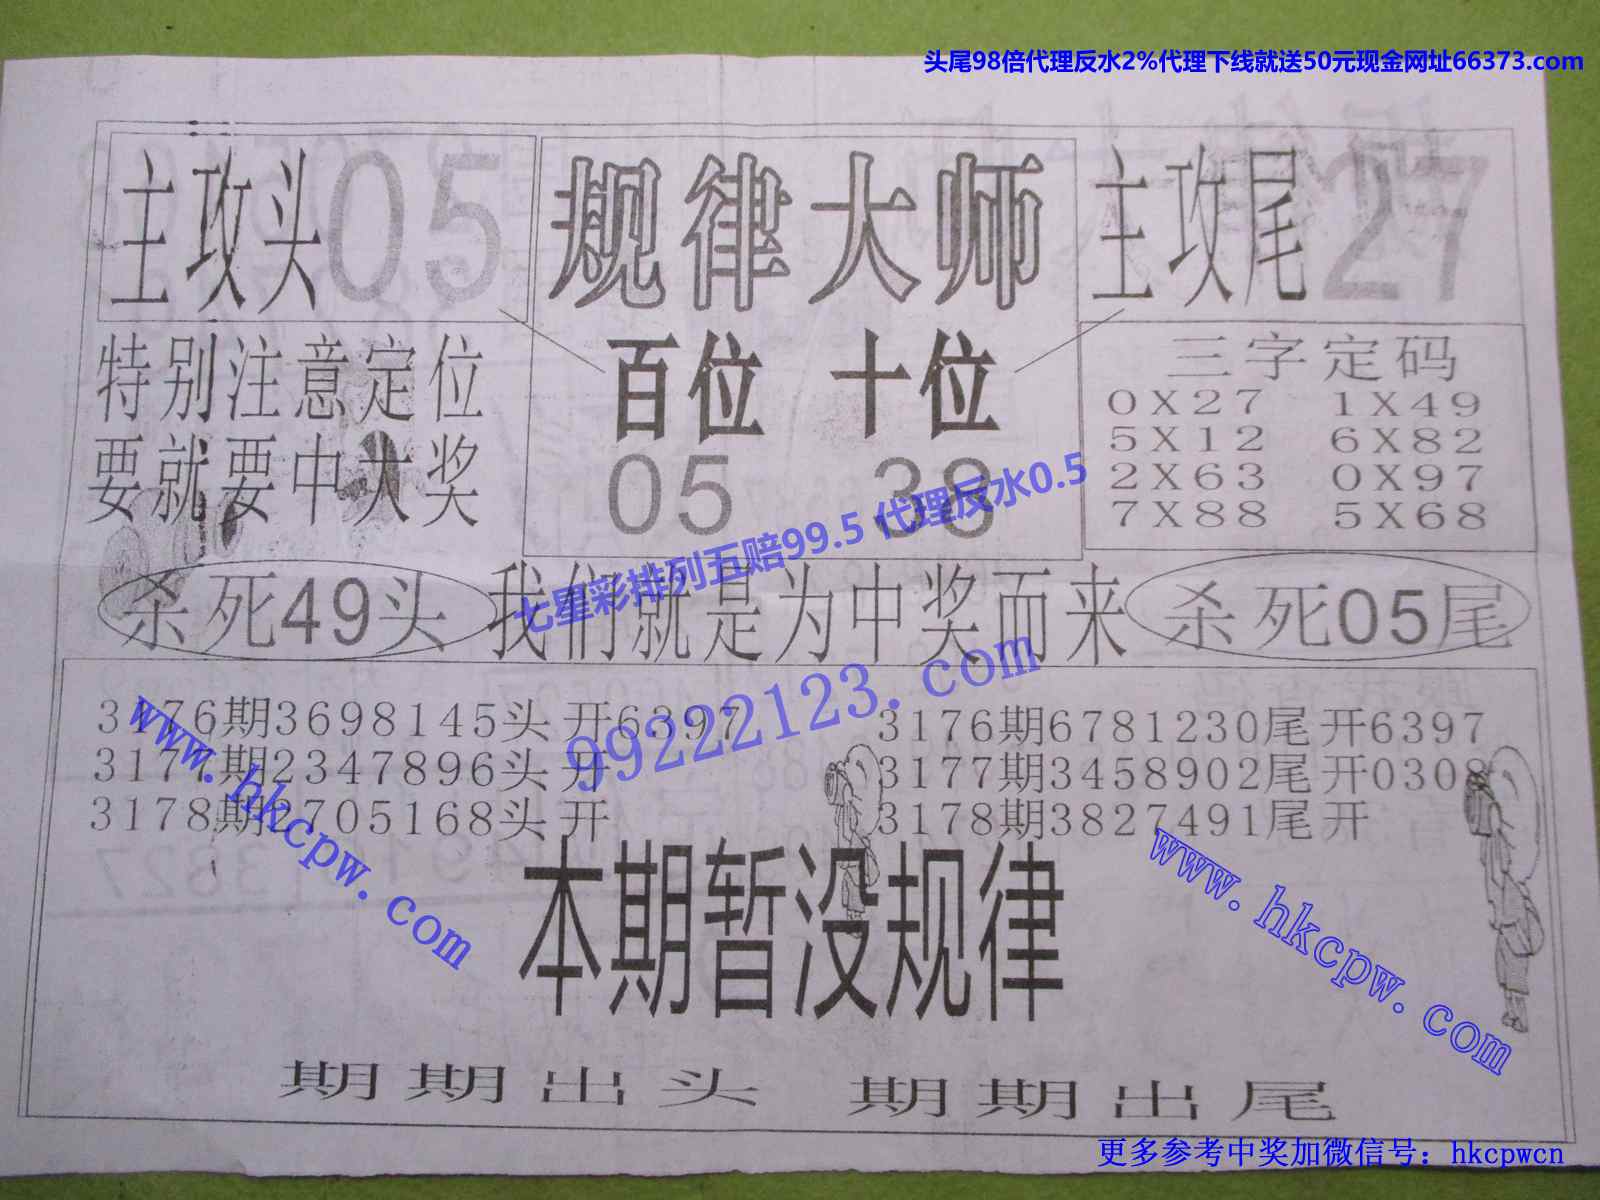 头尾98倍代理反水2%代理下线就送50元现金网址66373.com
主攻头05
规律大师
主攻尾27
特别注意定位
要就要中大奖
百位 十位
05 38
三字定码
0X27 1X49
5X12 6X82
2X63 0X97
7X88 5X68
七星彩排列五赔99.5 代理反水0.5
杀死49头 我们就是为中奖而来 杀死05尾
99222123.com
3176期3698145头 开6397
3177期2347896头 开
3178期2705168头 开
3176期6781230尾 开6397
3177期3458902尾 开0308
3178期3827491尾 开
www.hkcpw.com
www.hkcpw.com
本期暂没规律
期期出头 期期出尾
更多参考中奖加微信号：hkcpwcn